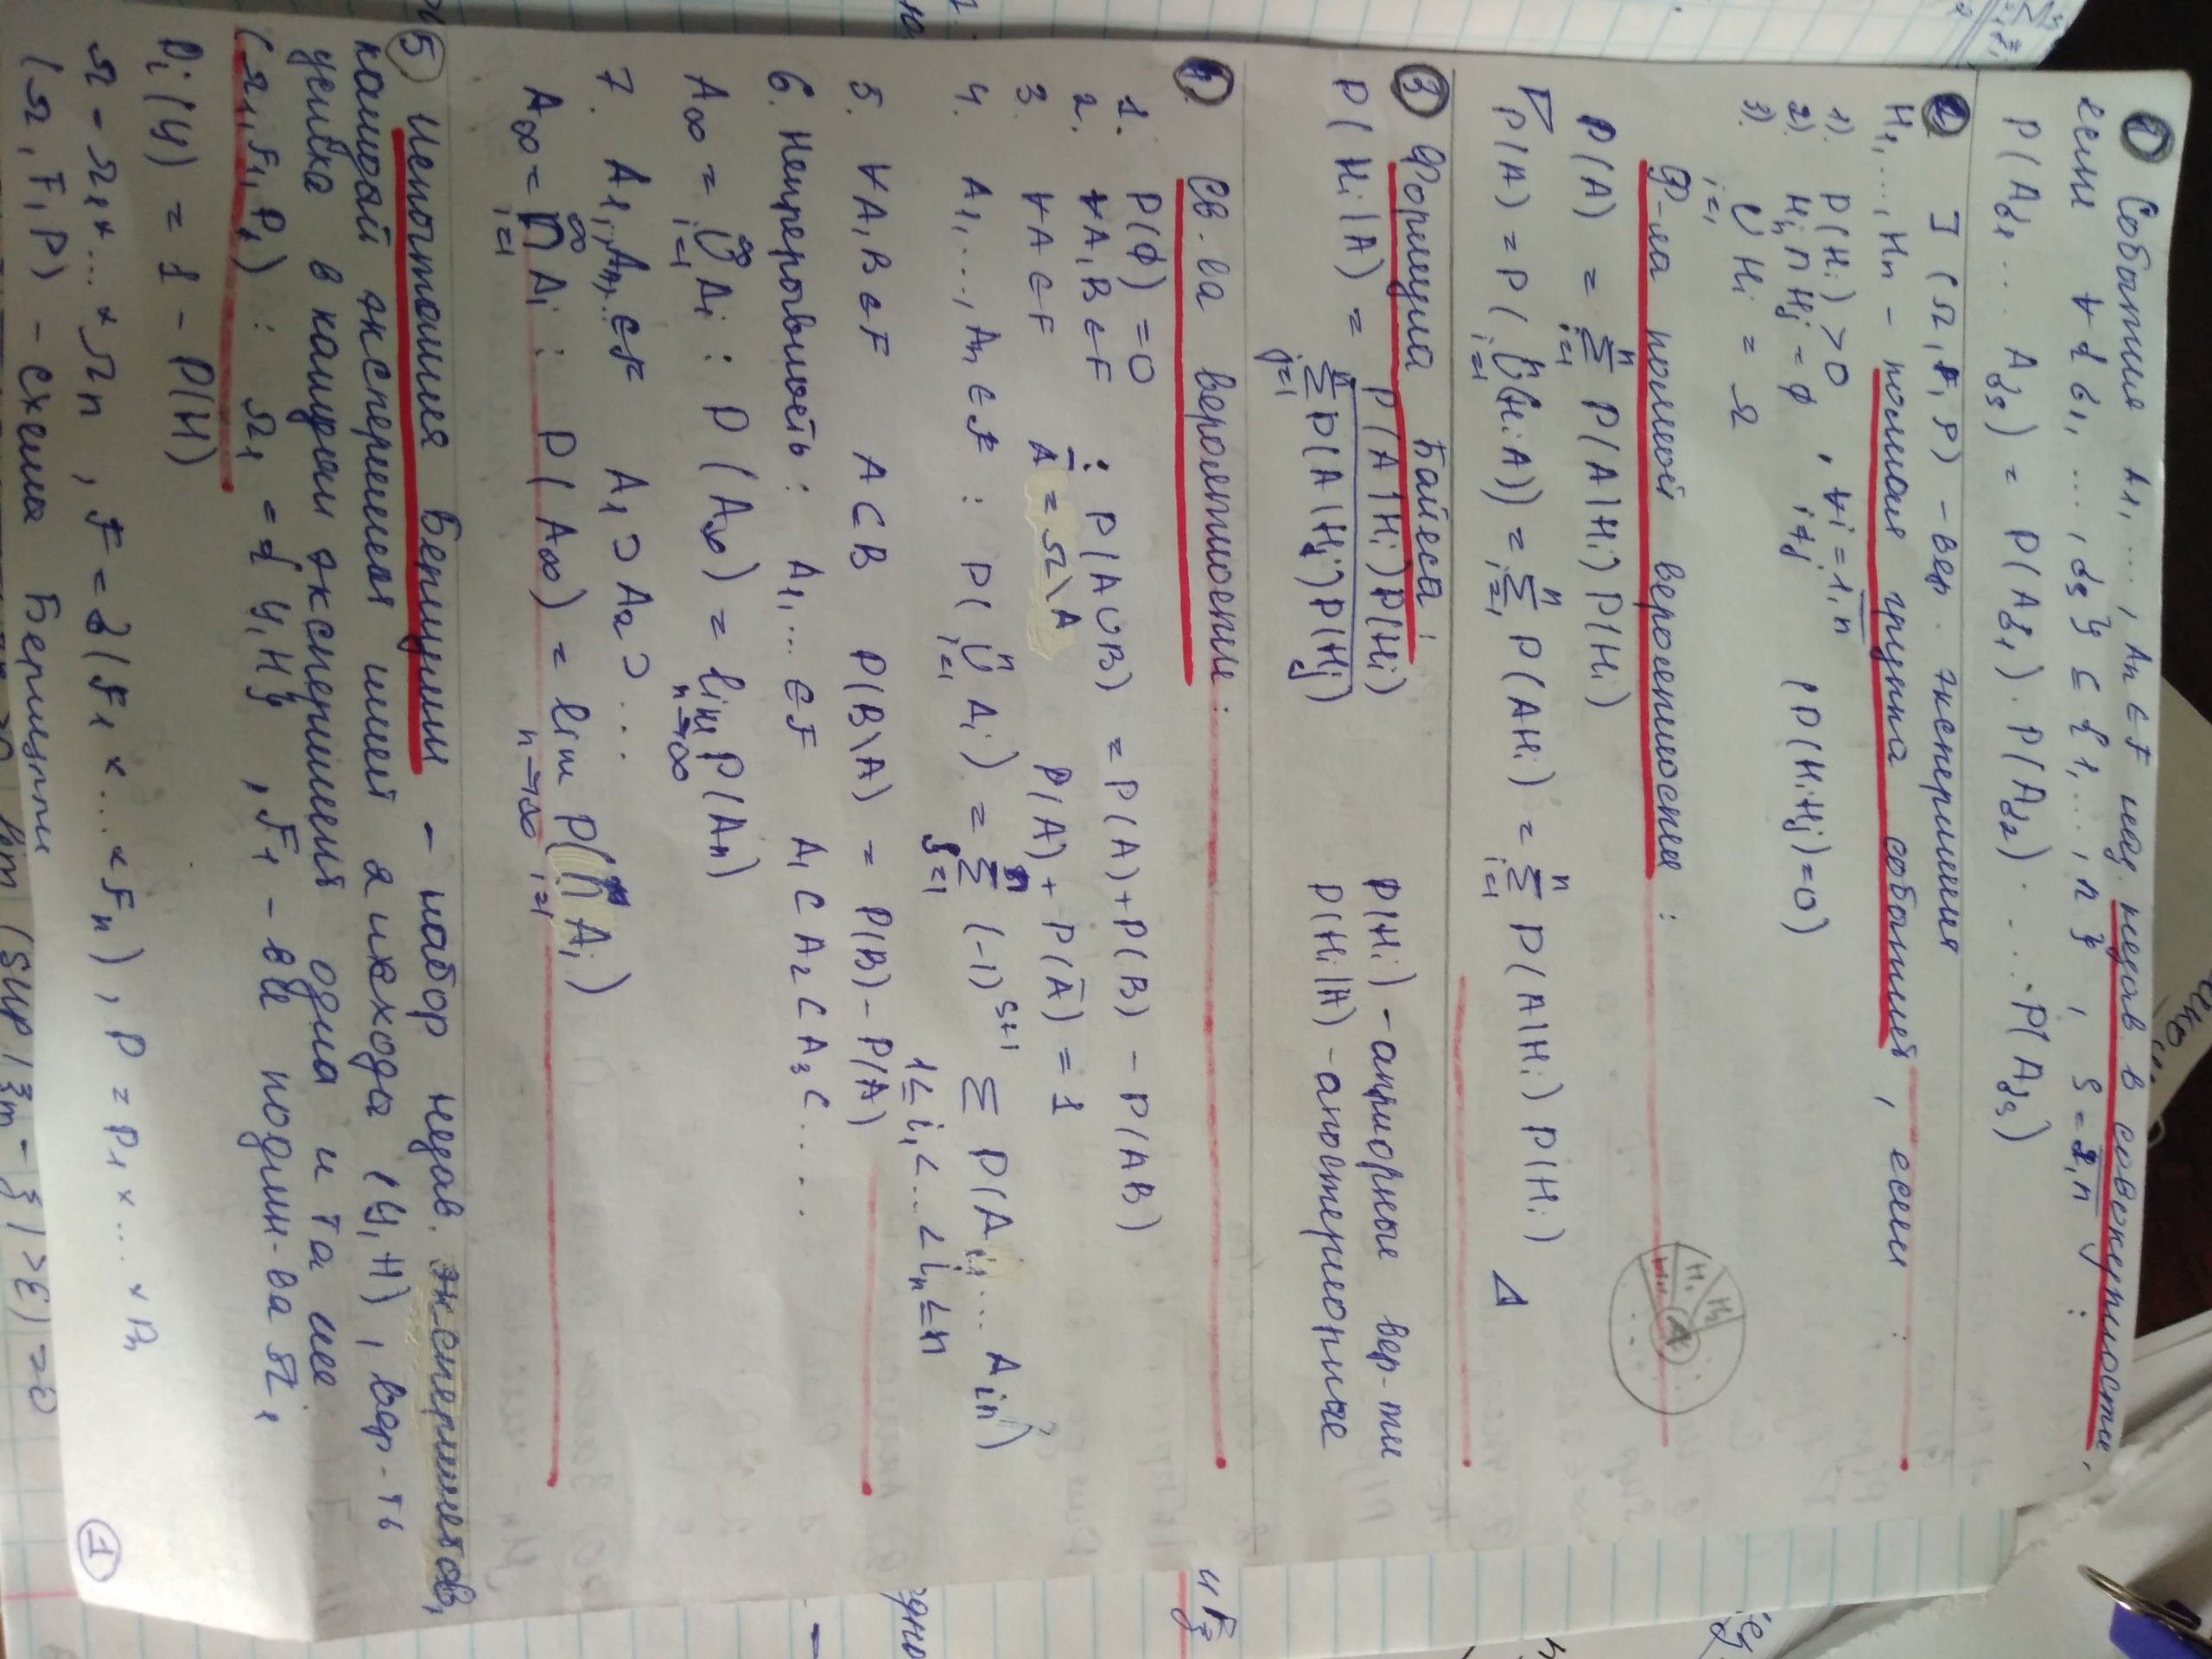 1 События A1, ..., An ∈ F наз. незав. в совокупности,
если ∀ {j1, ..., js} ⊆ {1, ..., n}, s = 2,n :
P(Aj1 ... Ajs) = P(Aj1) · P(Aj2) · ... · P(Ajs)
2 ∃ (Ω, F, P) – вер. эксперимент
H1, ..., Hn – полная группа событий, если :
1). P(Hi) > 0 , ∀i = 1,n
2). Hi ∩ Hj = ∅ i≠j (P(HiHj)=0)
3). n ∪ i=1 Hi = Ω
H1 H2 Hn A
Ф-ла полной вероятности :
P(A) = n Σ i=1 P(A|Hi) P(Hi)
P(A) = P( n ∪ i=1 (HiA)) = n Σ i=1 P(AHi) = n Σ i=1 P(A|Hi) P(Hi) Δ
3 Формула Байеса :
P(Hi|A) = P(A|Hi)P(Hi) / n Σ j=1 P(A|Hj)P(Hj)
P(Hi) – априорные вер-ти
P(Hi|A) – апостериорные
4. Св-ва вероятности :
1. P(∅) = 0
2. ∀A,B ∈ F : P(A∪B) = P(A)+P(B) – P(AB)
3. ∀A ∈ F Ā = Ω\A P(A) + P(Ā) = 1
4. A1, ..., An ∈ F : P( n ∪ i=1 Ai) = n Σ s=1 (-1)^s+1 Σ P(Ai1 ... Ain)
1 ≤ i1 < ... < in ≤ n
5. ∀A,B ∈ F A ⊂ B P(B\A) = P(B) – P(A)
6. Непрерывность : A1, ... ∈ F A1 ⊂ A2 ⊂ A3 ⊂ ....
A∞ = ∞ ∪ i=1 Ai : P(A∞) = lim n→∞ P(An)
7. A1,..,An,.. ∈ F A1 ⊃ A2 ⊃ ...
A∞ = ∞ ∩ i=1 Ai : P(A∞) = lim n→∞ P( n ∩ i=1 Ai)
5 Испытания Бернулли – набор незав. экспериметов,
каждый эксперимент имеет 2 исхода (У,Н), вер-ть
успеха в каждом эксперименте одна и та же.
(Ω1, F1, P1) : Ω1 = {У,Н} , F1 – все подмн-ва Ω1
Pi(У) = 1 – P(Н)
Ω = Ω1 × ... × Ωn , F = σ(F1 × ... × Fn) , P = P1 × ... × Pn
(Ω, F, P) – схема Бернулли
1